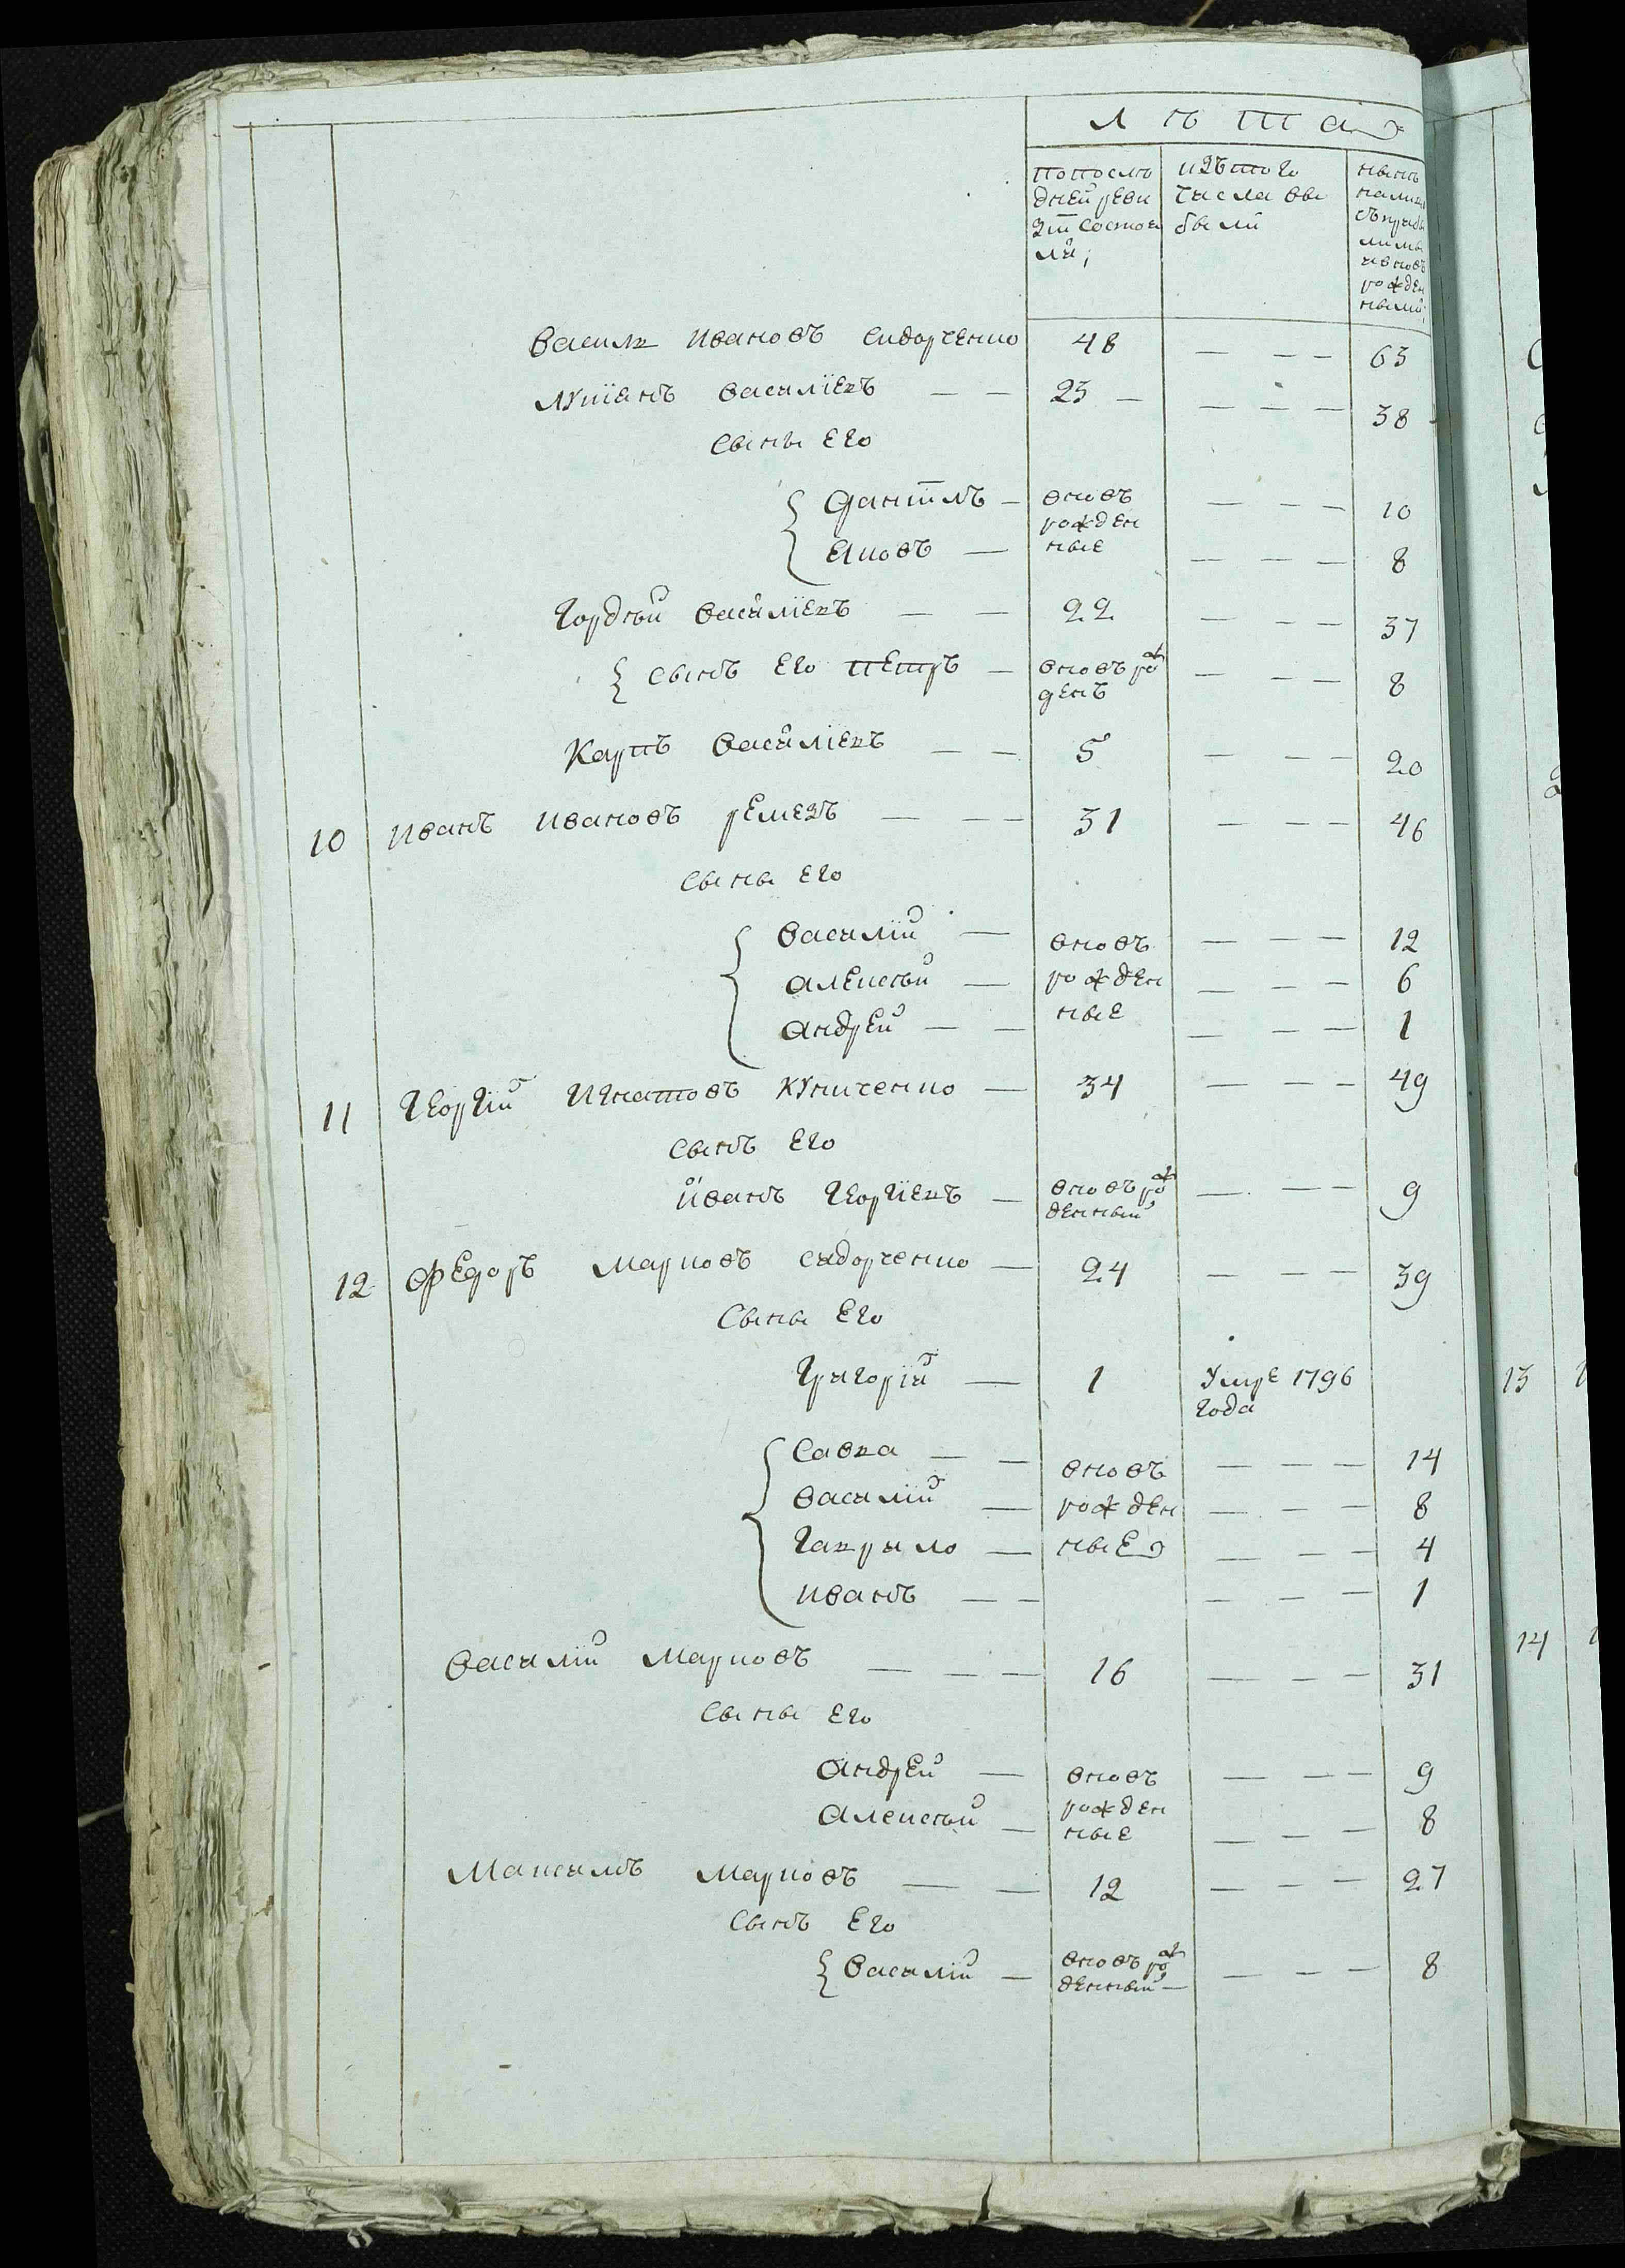 Лѣта
попослѣ
дней реви
зіи состоя
ли;
изътого
числа вы
были
нынѣ
съприбы
лыми
ивновь
рожден
ными;
Василь Ивановъ Сидорченко 48 — — — 63
Лукіянъ Василіевъ — — 23 — — — — 38
Сыны Его
Даніилъ — вновь — — — 10
рожден
Яковъ — ные — — — 8
Гордѣй Василіевъ — — 22 — — — 37
сынъ Его Петръ — вновь рож — — — 8
денъ
Карпъ Василіевъ — — 5 — — — 20
10 Иванъ Ивановъ Ремезъ — — — 31 — — — 46
Сыны Его
Василій — вновь — — — 12
Алексѣй — рожден — — — 6
Андрей — — ные — — — 1
11 Георгій Игнатовъ Куниченко — 34 — — — 49
Сынъ Его
Иванъ Георгіевъ — вновь рож — — — 9
денный
12 Федоръ Марковъ Сидорченко — 24 — — — 39
Сыны Его
Григорій — 1 Умре 1796
года
Савка — — вновь — — — 14
Василій — рожден — — — 8
Гаврыло — ные — — — 4
Иванъ — — — — — 1
Василій Марковъ — — — 16 — — — 31
Сыны Его
Андрей — вновь — — — 9
рожден
Алексѣй — ные — — — 8
Максимъ Марковъ — — 12 — — — 27
Сынъ Его
Василій — вновь рож — — — 8
денный —
13
14